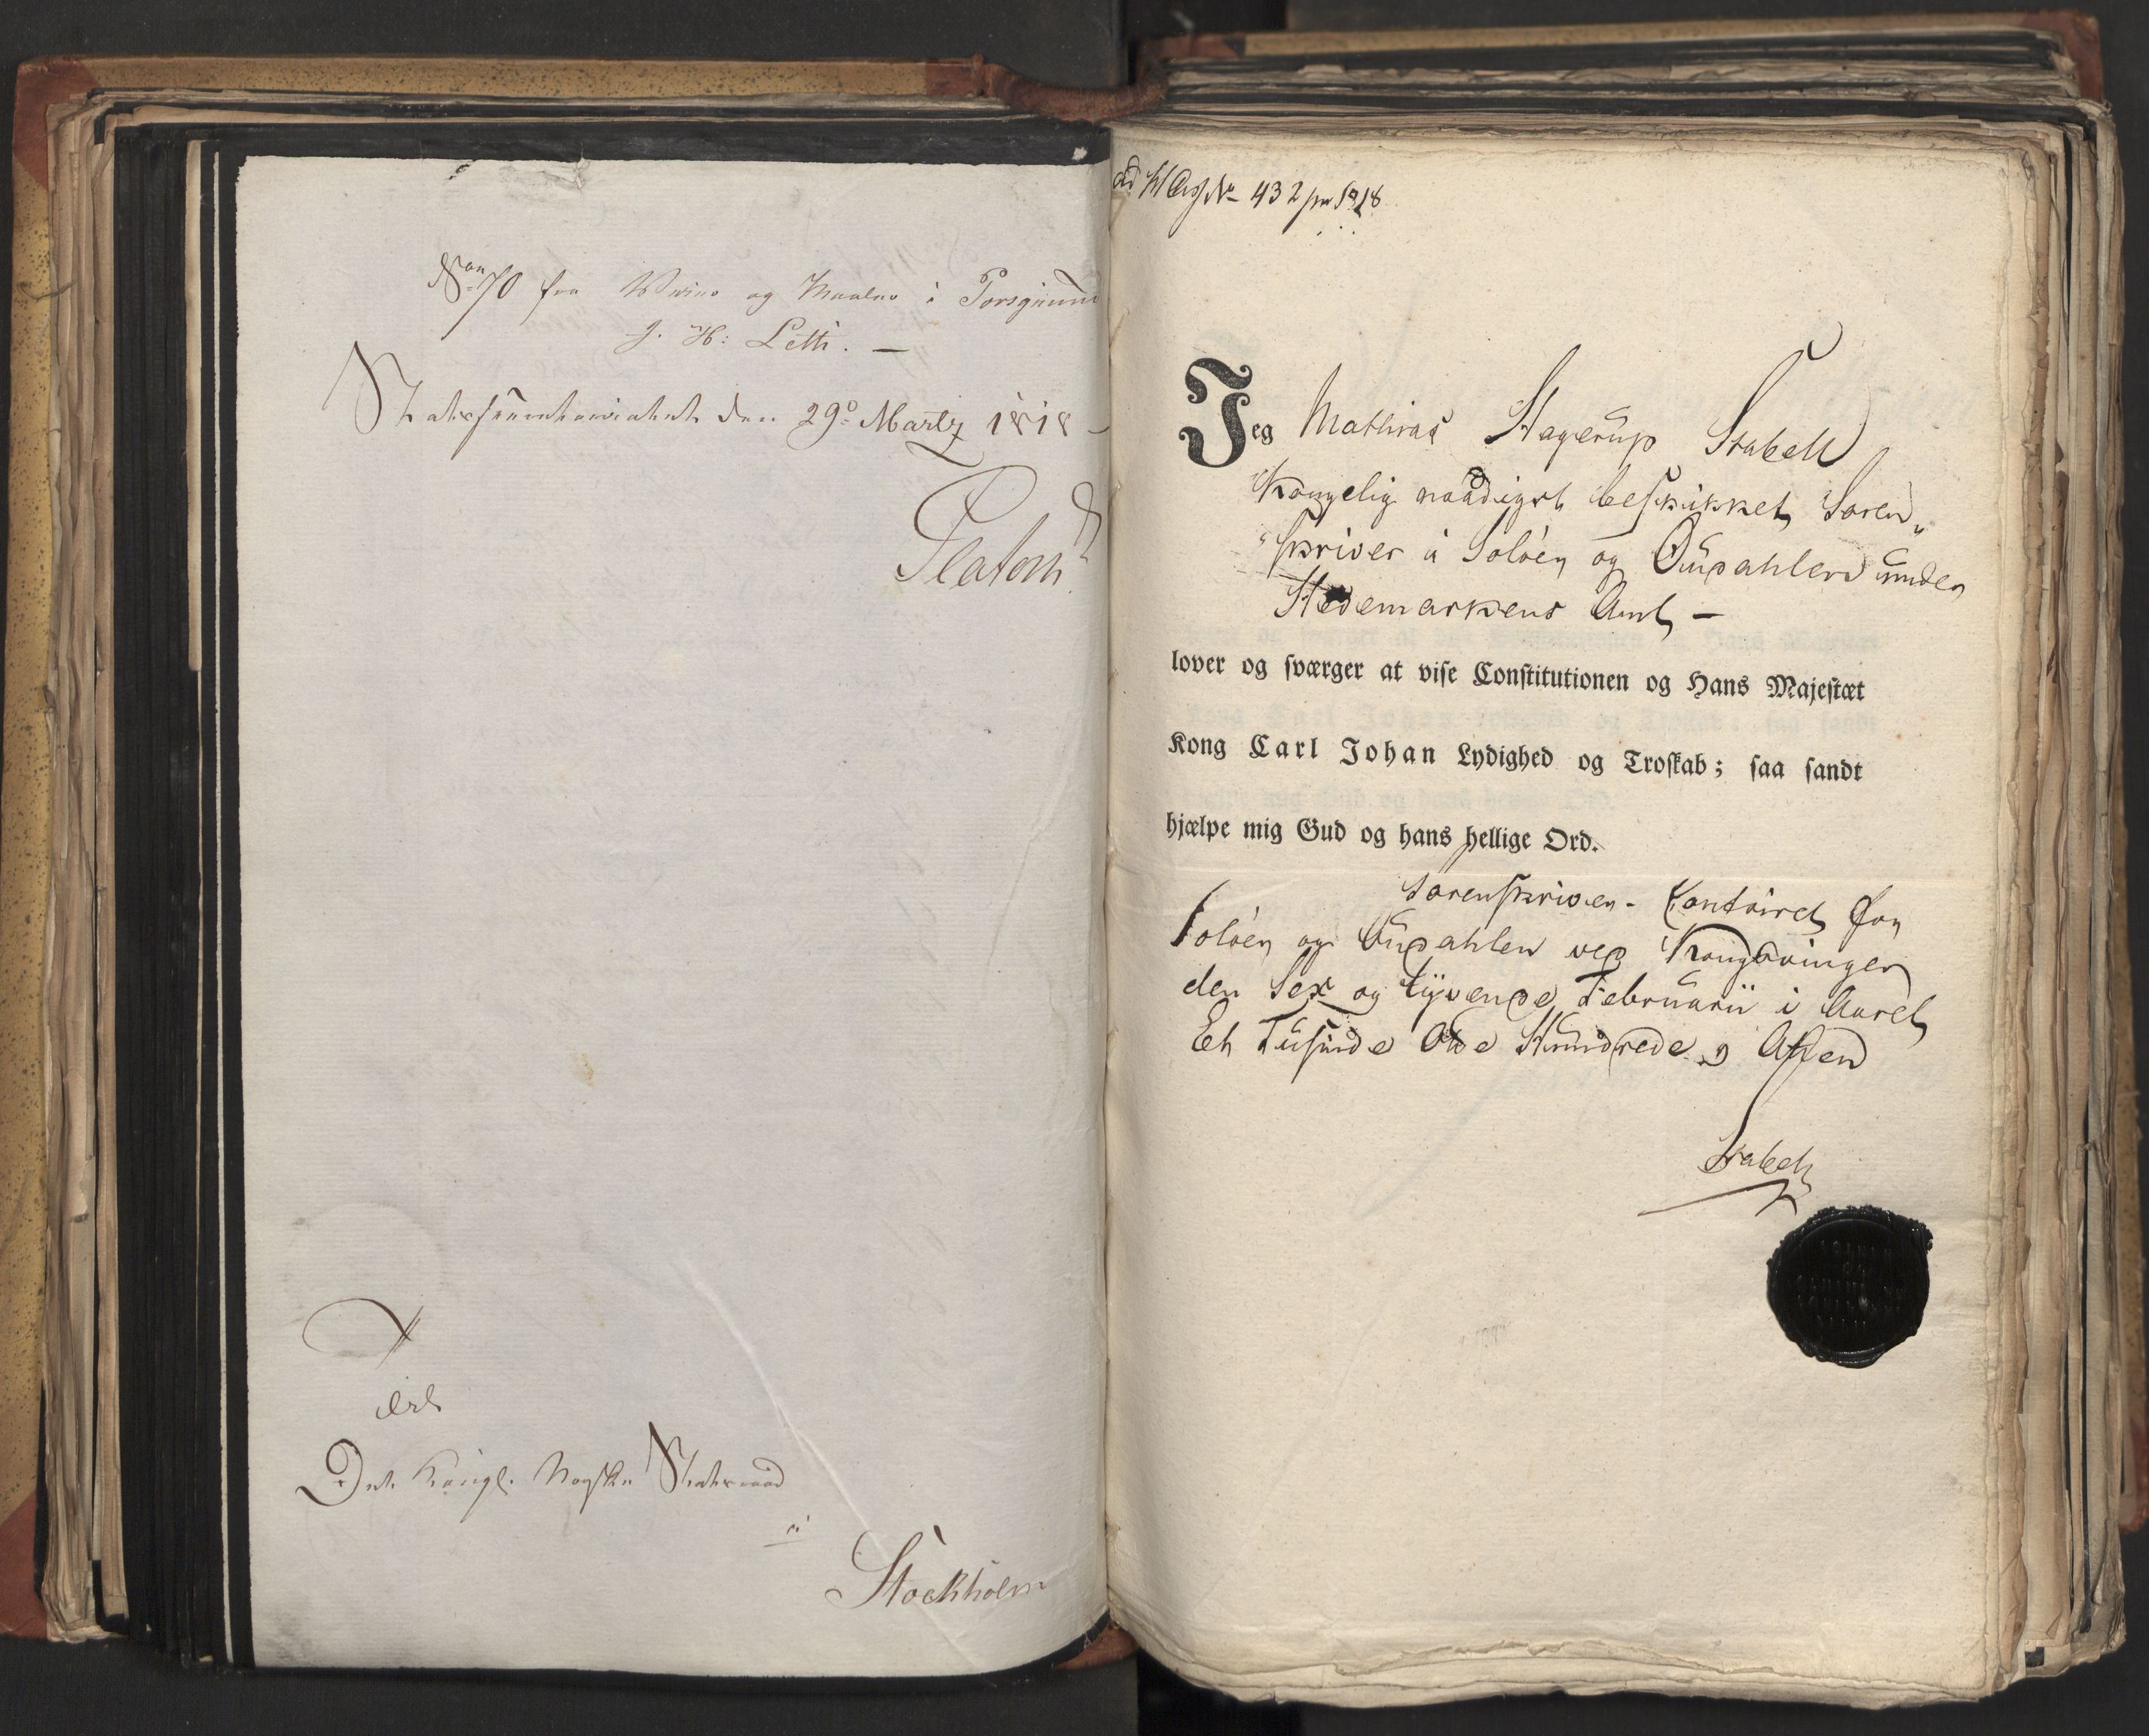 70 fra Veier og Maaler i Porsgrund
J. H: Leth. —
Statssecretariatet den 29de Martz 1818 –
Platou
Til
Det Kongl. Norske Statsraad
i
Stockholm
No 432 pro 1818
Jeg Mathias Hagerup Stabell
Kongelig naadigst beskikket Soren„
„skriver i Soløer og Oudahlen under
Hedemarkens Amt —
lover og sværger at vise Constitutionen og Hans Majestæt
Kong Carl Johan Lydighed og Troskab; saa sandt
hjælpe mig Gud og hans hellige Ord.
Sorenskriver-Contoiret for
Soløer og Oudahlen ved Kongsvinger
den Sex og tyvende Februarii i Aaret
Et Tusinde Otte Hundrede og Atten
Stabell